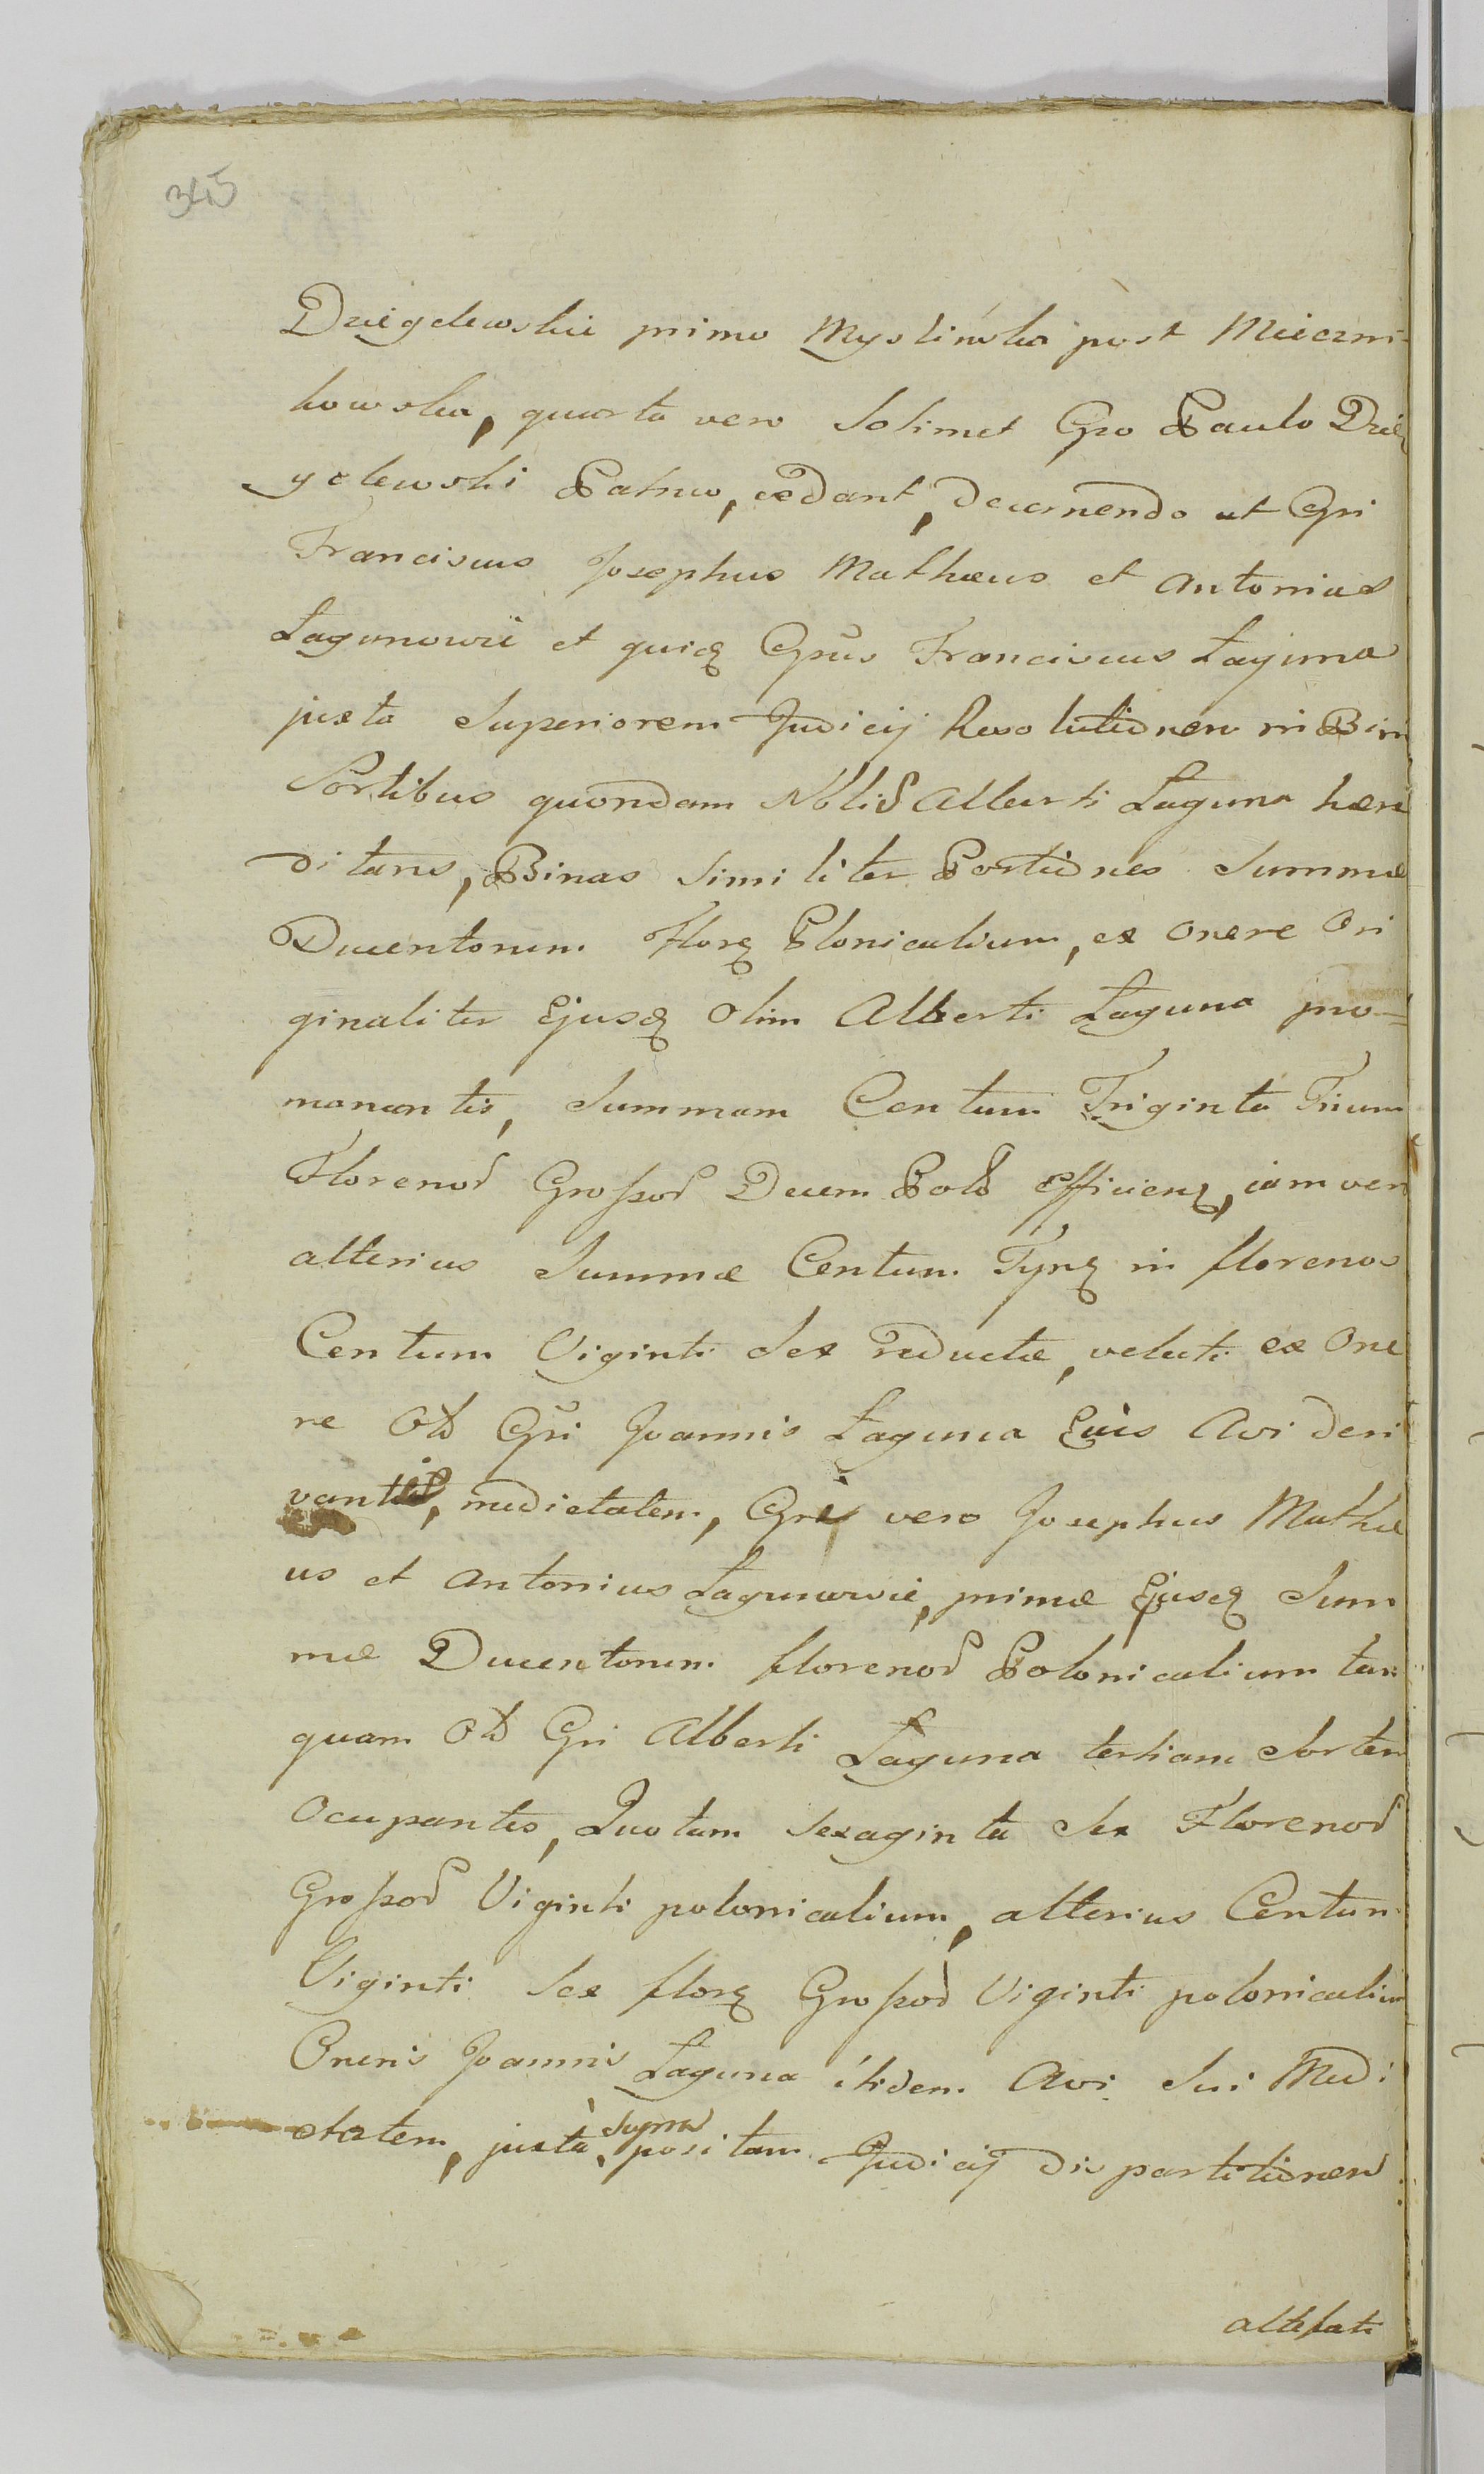 345
Dzięgelewskie primo Myslińska post Mieczni-
kowska, quarta vero Solimet Gro Paulo Dzię
gelewski Patruo, cedant, decernendo ut Gri
Franciscus Josephus Mathæus et Antonius
Lagunowie et quidꝫ Grus Franciscus Laguna
juxta Superiorem Judicij Resolutionem in Bini
Sortibus quondam Nblis Alberti Laguna hære
ditans, Binas Similiter Portiones Summæ
Ducentorum Florꝫ Plonicalium, ex Onere Ori
ginaliter Ejusdꝫ Olim Alberti Laguna pro=
manantis, Summam Centum Triginta Trium
Florenor Grossor Decem Pol efficienꝫ, iam vero
alterius Summæ Centum Tynꝫ in florenos
Centum Viginti Sex reductæ, veluti ex One
re Ol Gri Joannis Laguna Ejus Avi deri
vantis, medietatem, Gri vero Josephus Mathæ
us et Antonius Lagunowie, primæ Ejusdꝫ Sum
mæ Ducentorum florenor Polonicalium tan
quam Ol Gri Alberti Laguna tertiam Sortem
Ocupantes, Quotam Sexaginta Sex Florenor
Grossor Viginti polonicalium, alterius Centum
Viginti Sex florꝫ Grossor Viginti polonicalium
Oneris Joannis Laguna itidem Avi Sui Medi
etatem, juxta supra positam Judicij dispartitionem
altefati